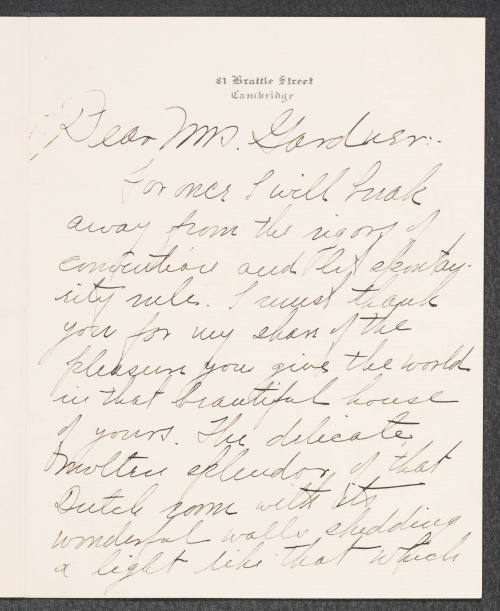 81 Brattle Street
Cambridge
Dear Mrs. Gardner:-
For once I will break
away from the rigors of
convention and let spontan-
eity rule. I must thank
you for my share of the
pleasure you give the world
in that beautiful house
of yours. The delicate
molten splendor of that
Dutch room with its
wonderful walls shedding
a light like that which